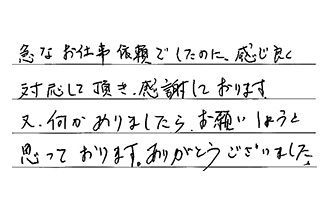 急なお仕事依頼でしたのに、感じ良く
対応して頂き、感謝しております。
又、何かありましたら、お願いしようと
思っております。ありがとうございました。